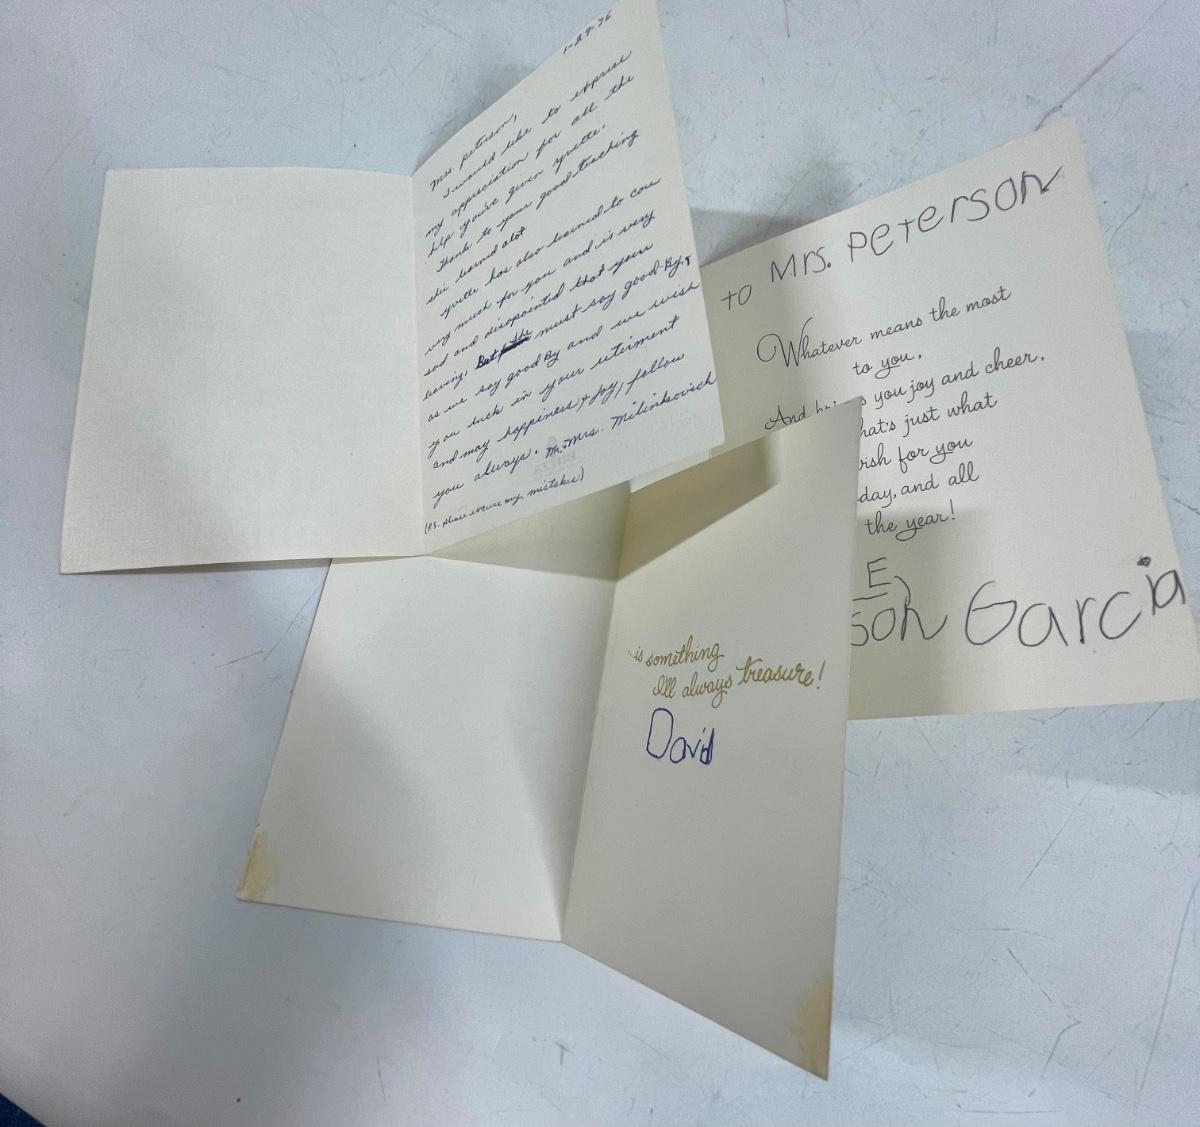 1-29-76
Mrs. Peterson,
I would like to express
my appreciation for all the
help you've given Yvette.
Thank to your good teaching
she learnd alot
Yvette has also learned to care
very much for you and is very
sad and disapointed that your
leaving. But must say good By, &
as we say good By and we wish
you luck in your retirment
and may happiness & Joy, follow
you always. Mr. Mrs. Milinkovich
(P.S. please excuse my mistakes)
TO MRS. PETERSON
Whatever means the most
to you,
And you joy and cheer,
hat's just what
ish for you
day, and all
the year!
E)
SON Garcia
...is something
I'll always treasure!
David